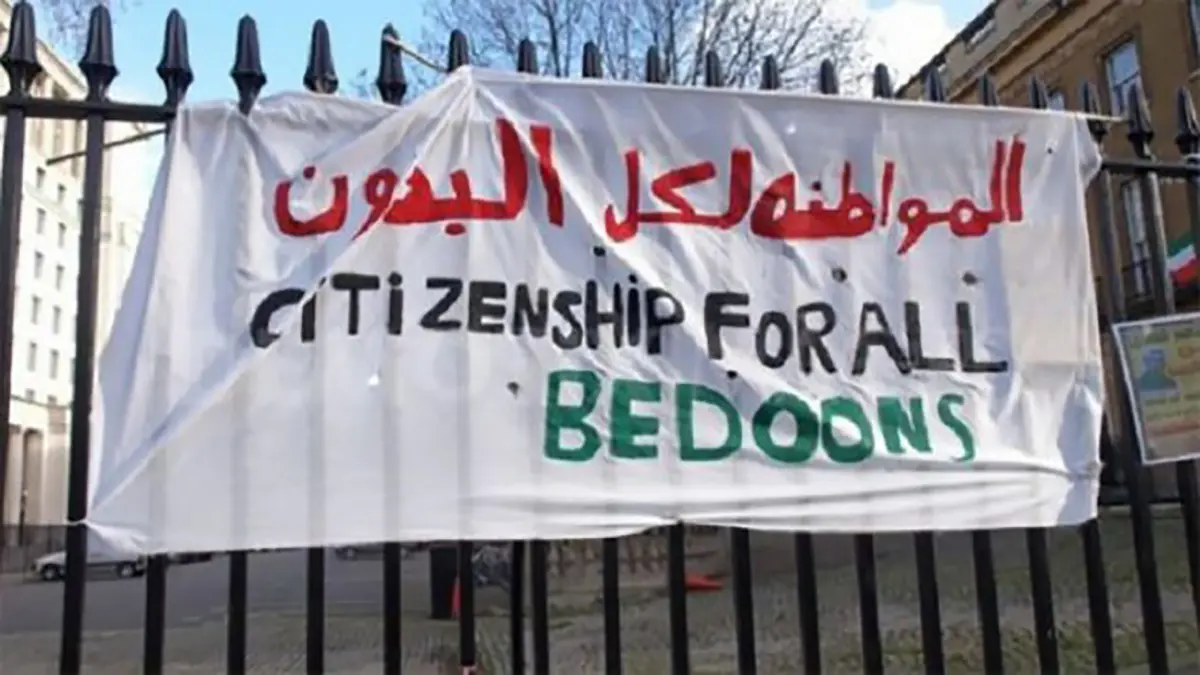 المواطنه لكل البدون
CITIZENSHIP FOR ALL
BEDOONS